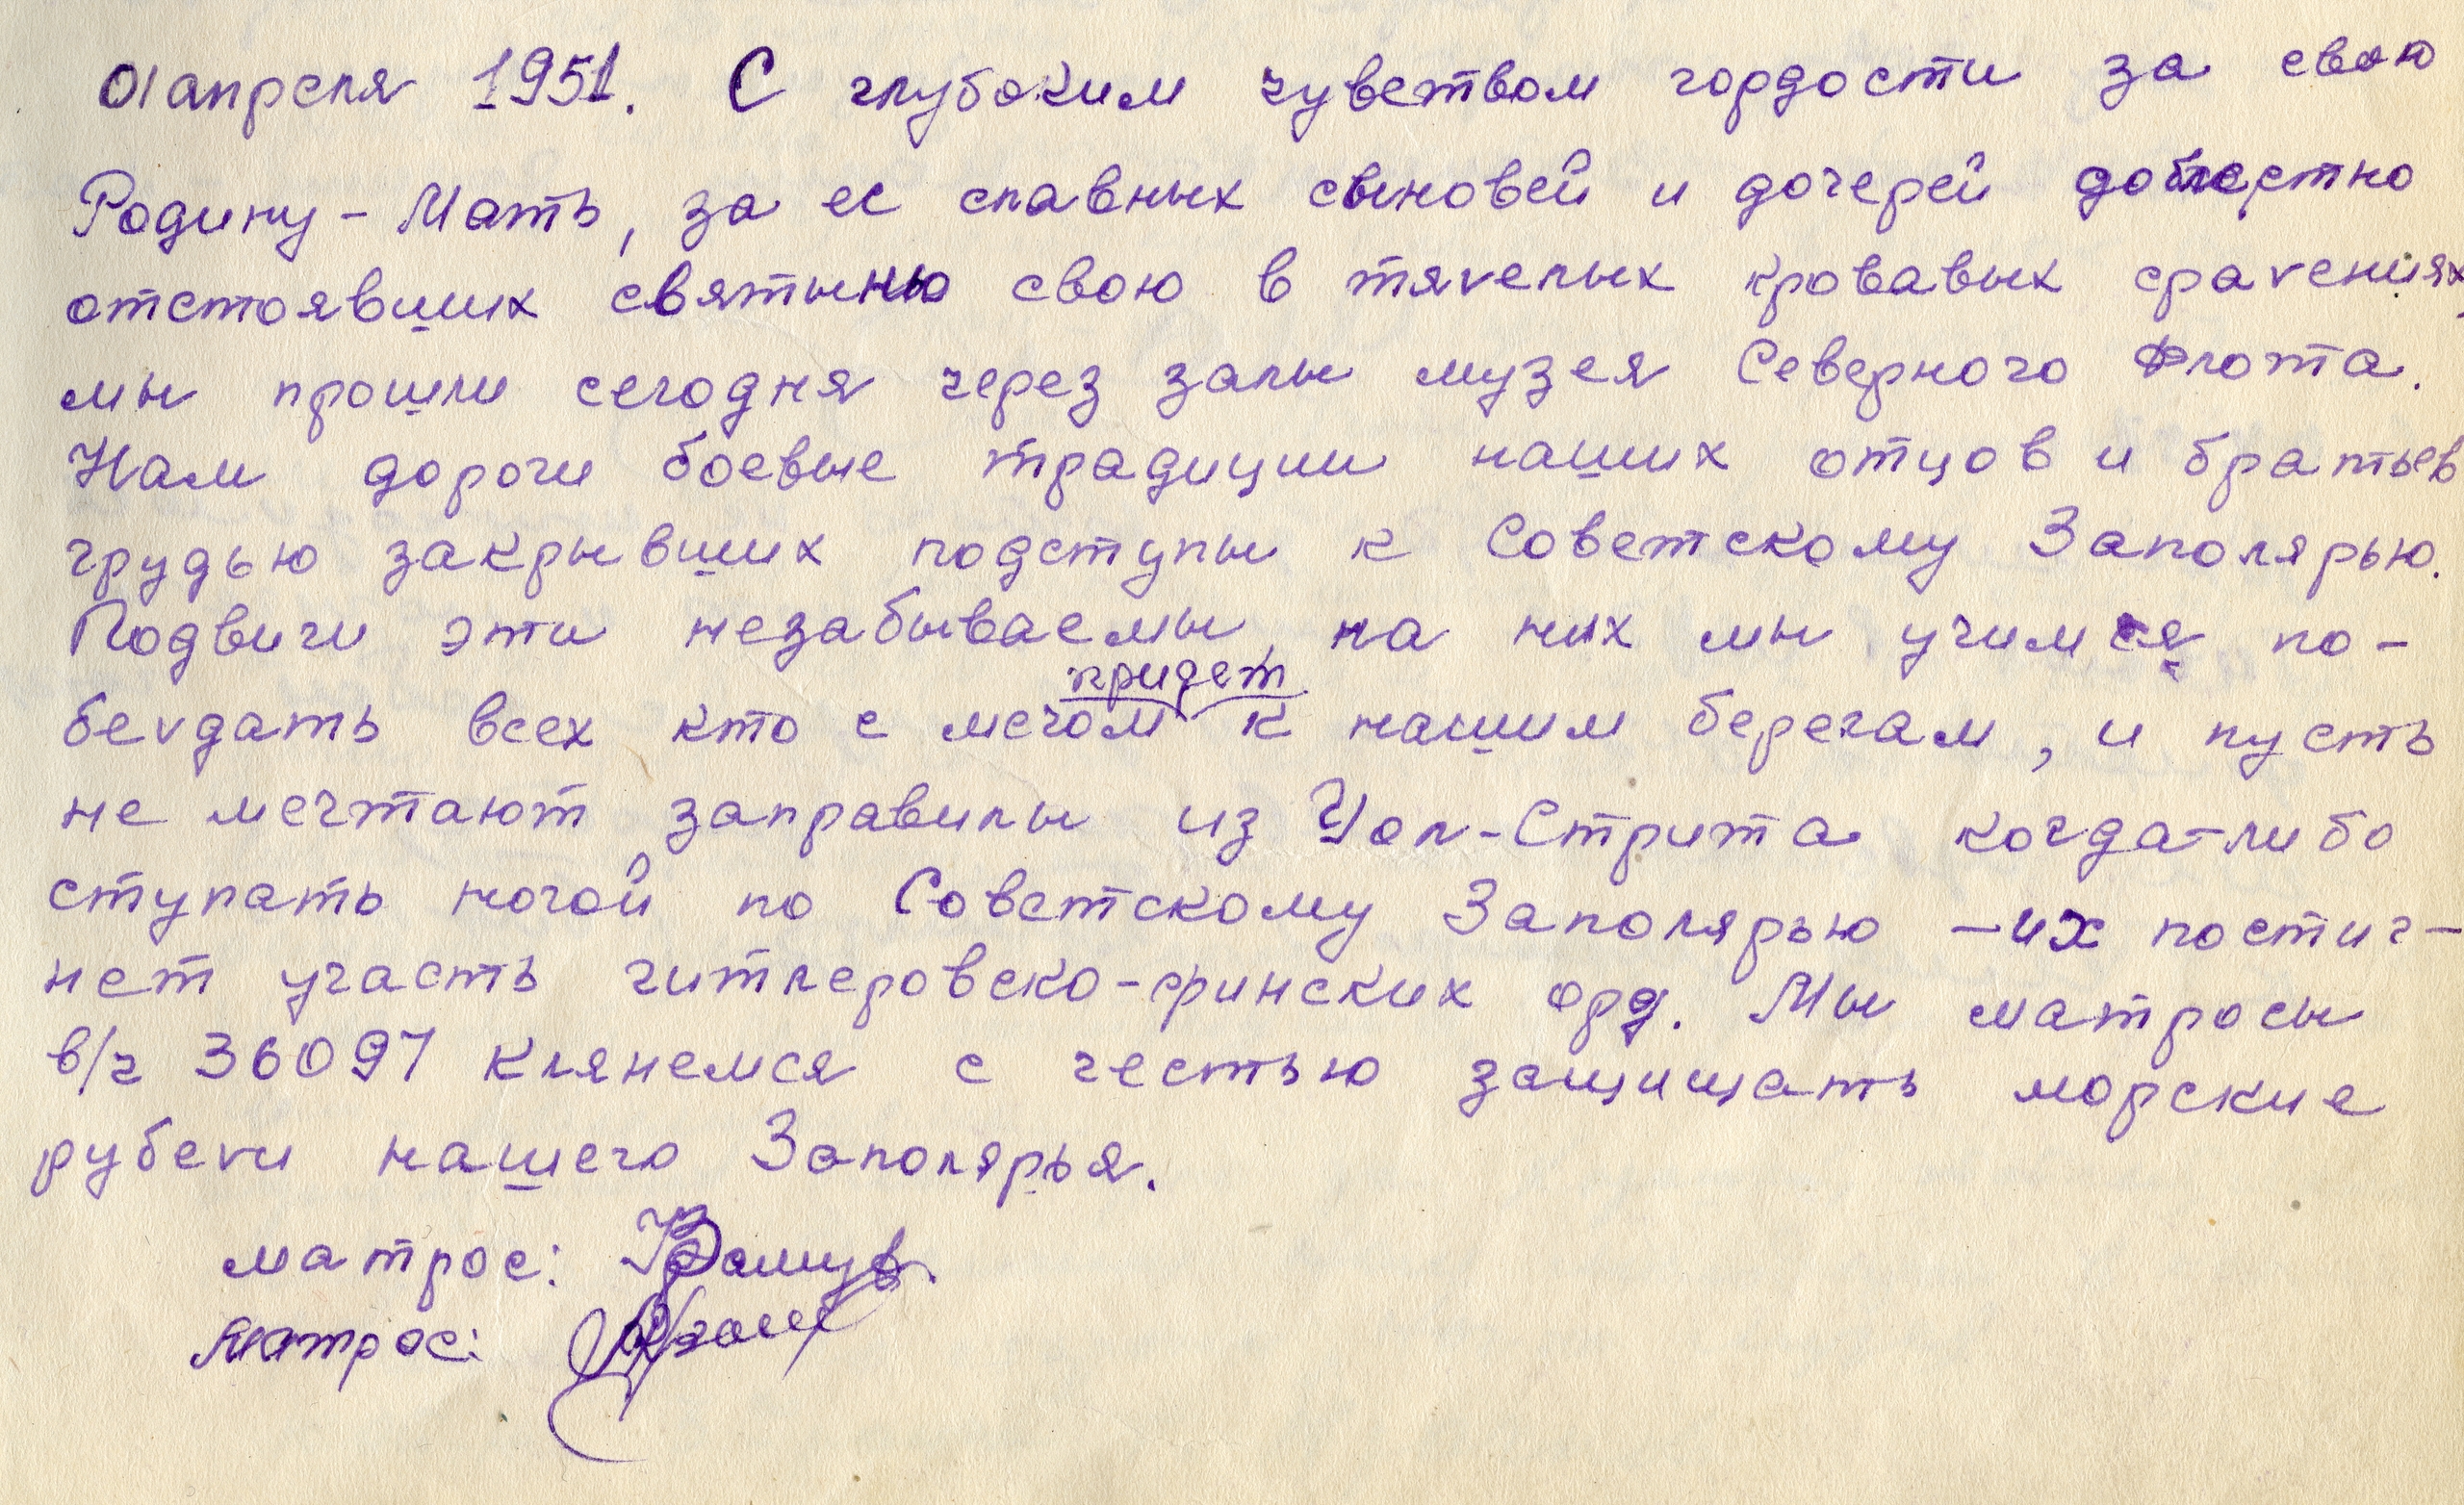 01 апреля 1951. С глубоким чувством гордости за свою
Родину - Мать, за ее славных сыновей и дочерей доблестно
отстоявших святыню свою в тяжелых кровавых сражениях,
мы прошли сегодня через залы музея Северного Флота.
Нам дороги боевые традиции наших отцов и братьев
грудью закрывших подступы к Советскому Заполярью.
Подвиги эти незабываемы, на них мы учимся по-
придет
беждать всех кто с мечом к нашим берегам, и пусть
не мечтают заправилы из Уол-Стрита когда-либо
ступать ногой по Советскому Заполярью - их постиг-
нет участь гитлеровско-финских орд. Мы матросы
в/ч 36097 клянемся с честью защищать морские
рубежи нашего Заполярья.
матрос:
матрос: